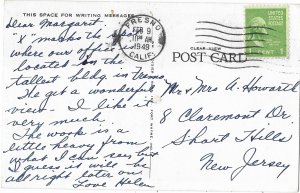 THIS SPACE FOR WRITING MESSAGES
Dear Margaret
"X" marks the spot
where our office is
located in the
tallest bldg in Fresno
I've get a wonderful
view - I like it
very much.
The work is a
little heavy from
what I can say but
I guess it will be
all right later on
Love Helen
FRESNO
FEB 9
AM
1949
CALIF.
CLEAR-VIEW
POST CARD
Mr + Mrs A. Howarth
8 Claremont Dr
Short Hills
New Jersey